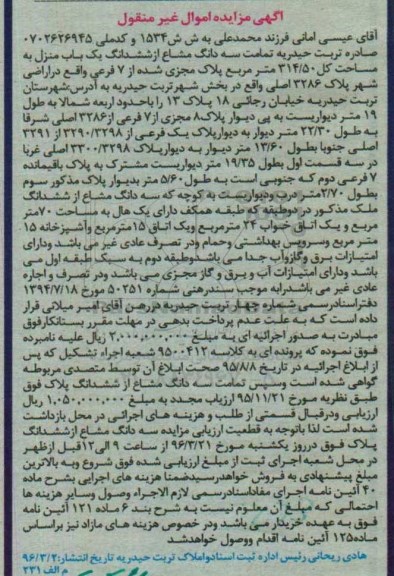 آگهی مزایده اموال غیر منقول
آقای عیسی امانی فرزند محمدعلی به ش ش۱۵۳۴ و کدملی ۰۷۰۲۶۲۶۹۴۵
صادره تربت حیدریه تمامت سه دانگ مشاع ازششدانگ یک باب منزل به
مساحت کل۳۱۴/۵۰ متر مربع پلاک مجزی شده از ۷ فرعی واقع دراراضی
شهر پلاک ۳۲۸۶ اصلی واقع در بخش شهرتربت حیدریه به آدرس:شهرستان
تربت حیدریه خیابان رجائی ۱۸ پلاک ۱۳ را باحدود اربعه شمالا به طول
۱۹ متر دیواریست به پی دیوار پلاک۸ مجزی از۷ فرعی از۳۲۸۶ اصلی شرقا
به طول ۲۲/۳۰ متر دیوار به دیوارپلاک یک فرعی از ۳۲۹۰/۳۲۹۸ از ۳۲۹۱
اصلی جنوبا بطول ۱۳/۶۰ متر دیوار به دیوارپلاک ۳۳۰۰/۳۲۹۸ اصلی غربا
در سه قسمت اول بطول ۱۹/۳۵ متر دیواریست مشترک به پلاک باقیمانده
۷ فرعی دوم که جنوبی است به طول۵/۶۰ متر بدیوار پلاک مذکور سوم
بطول۲/۷۰متر درب ودیواریست به کوچه که سه دانگ مشاع از ششدانگ
ملک مذکور در دوطبقه که طبقه همکف دارای یک هال به مساحت ۷۰متر
مربع و یک اتاق خواب ۲۴ مترمربع ویک اتاق ۱۵مترمربع وآشپزخانه ۱۵
متر مربع وسرویس بهداشتی وحمام ودر تصرف عادی غیر می باشد ودارای
امتیازات برق وگازوآب جدا می باشدوطبقه دوم به سبک طبقه اول می
باشد ودارای امتیازات آب و برق و گاز مجزی می باشد ودر تصرف و اجاره
عادی غیر می باشدرابه موجب سندرهنی شماره ۵۰۲۵۱ مورخ ۱۳۹۴/۷/۱۸
دفتراسنادرسمی شماره چهار تربت حیدریه دررهن آقای امیر میلانی قرار
داده است که به علت عدم پرداخت بدهی در مهلت مقرر بستانکارفوق
مبادرت به صدور اجرائیه ای به مبلغ ۲.۰۰۰.۰۰۰.۰۰۰ ریال علیه نامبرده
فوق نموده که پرونده ای به کلاسه ۹۵۰۰۴۱۲ شعبه اجراء تشکیل که پس
از ابلاغ اجرائیه در تاریخ ۹۵/۸/۸ صحت ابلاغ آن توسط متصدی مربوطه
گواهی شده است وسپس تمامت سه دانگ مشاع از ششدانگ پلاک فوق
طبق نظریه مورخ ۹۵/۱۱/۲۱ ارزیاب مجدد به مبلغ ۱.۰۵۰.۰۰۰.۰۰۰ ریال
ارزیابی ودرقبال قسمتی از طلب و هزینه های اجرائی در محل بازداشت
شده است لذا باتوجه به قطعیت ارزیابی مزایده سه دانگ مشاع ازششدانگ
پلاک فوق درروز یکشنبه مورخ ۹۶/۳/۲۱ از ساعت ۹ الی۱۲قبل ازظهر
در محل شعبه اجرای ثبت از مبلغ ارزیابی شده فوق شروع وبه بالاترین
مبلغ پیشنهادی به فروش خواهدرسیدضمنا هزینه های اجرایی بشرح ماده
۴۰ آئین نامه اجرای مفاداسنادرسمی لازم الاجراء وصول وسایر هزینه ها
احتمالی که مبلغ آن معلوم نیست به شرح بند ۶ ماده ۱۲۱ آئین نامه
فوق به عهده خریدار می باشد ودر خصوص هزینه های مازاد نیز براساس
ماده۱۲۵ آئین نامه اقدام ووصول خواهدشد
هادی ریحانی رئیس اداره ثبت اسنادواملاک تربت حیدریه تاریخ انتشار:۹۶/۳/۲
م الف ۲۳۱